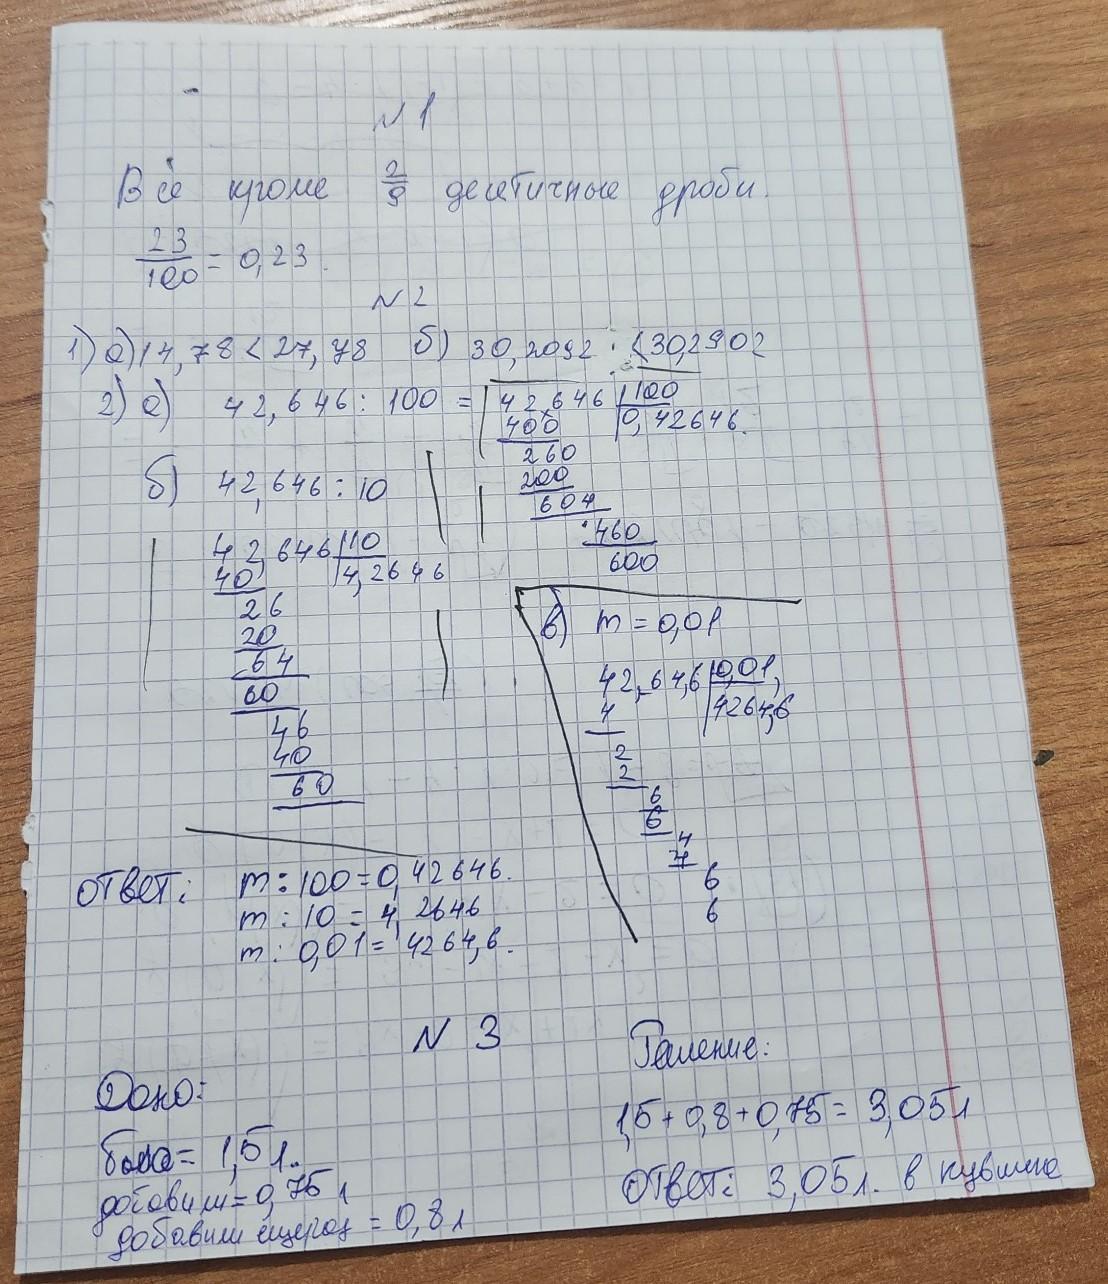 N 1
Все кроме 2/9 десятичные дроби.
23/100 = 0,23.
N 2
1) а) 14,78 < 27,78 б) 30,2092 < 30,2902
2) а) 42,646 : 100 = 42,646 | 100
400 0,42646.
260
200
604
460
600
б) 42,646 : 10
42,646 | 10
40 4,2646
26
20
64
60
46
40
60
в) m = 0,01
42,64,6 | 0,01,
4 4264,6
2
2
6
6
4
4
6
6
ответ: m : 100 = 0,42646.
m : 10 = 4,2646
m : 0,01 = 4264,6.
N 3
Дано:
= 1,5 л.
добавили = 0,75 л
добавили ещераз = 0,8 л
Решение:
1,5 + 0,8 + 0,75 = 3,05 л
ответ: 3,05 л. в кувшине